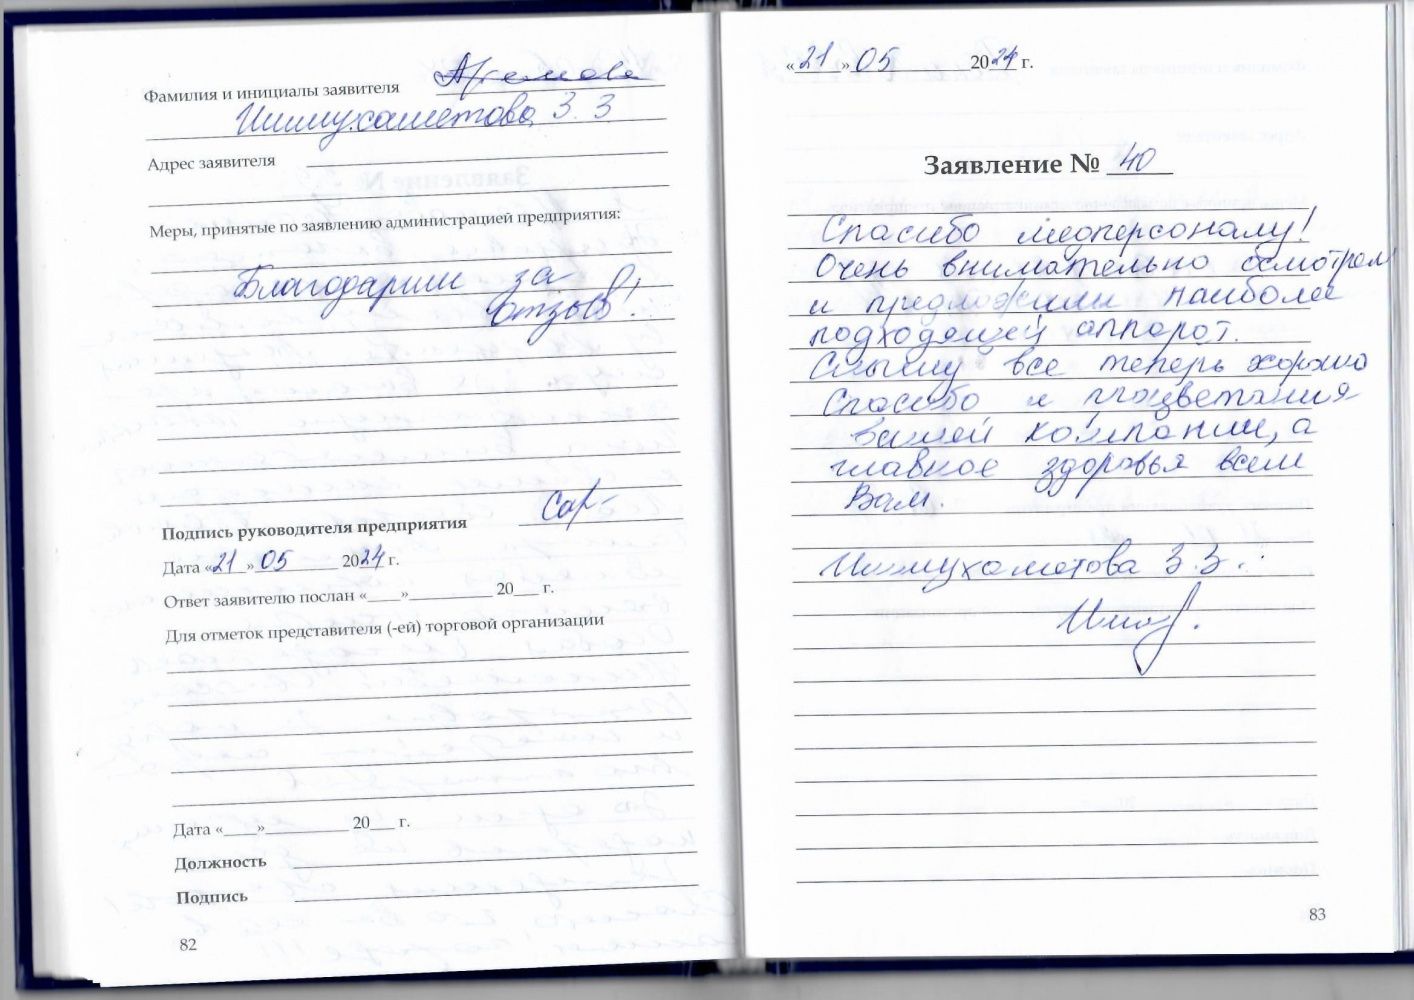 Фамилия и инициалы заявителя Артемова
Ишмухаметова З. З
Адрес заявителя
Меры, принятые по заявлению администрацией предприятия:
Благодарим за
отзыв!
Подпись руководителя предприятия
Дата «21» 05 2024 г.
Ответ заявителю послан «____»__________ 20___ г.
Для отметок представителя (-ей) торговой организации
Дата «____»__________ 20___ г.
Должность
Подпись
82
«21» 05 2024 г.
Заявление № 40
Спасибо медперсоналу!
Очень внимательно осмотрели
и предложили наиболее
подходящей аппарат.
Слышу все теперь хорошо
Спасибо и процветания
вашей компании, а
главное здоровья всем
Вам.
Ишмухаметова З.З.
83